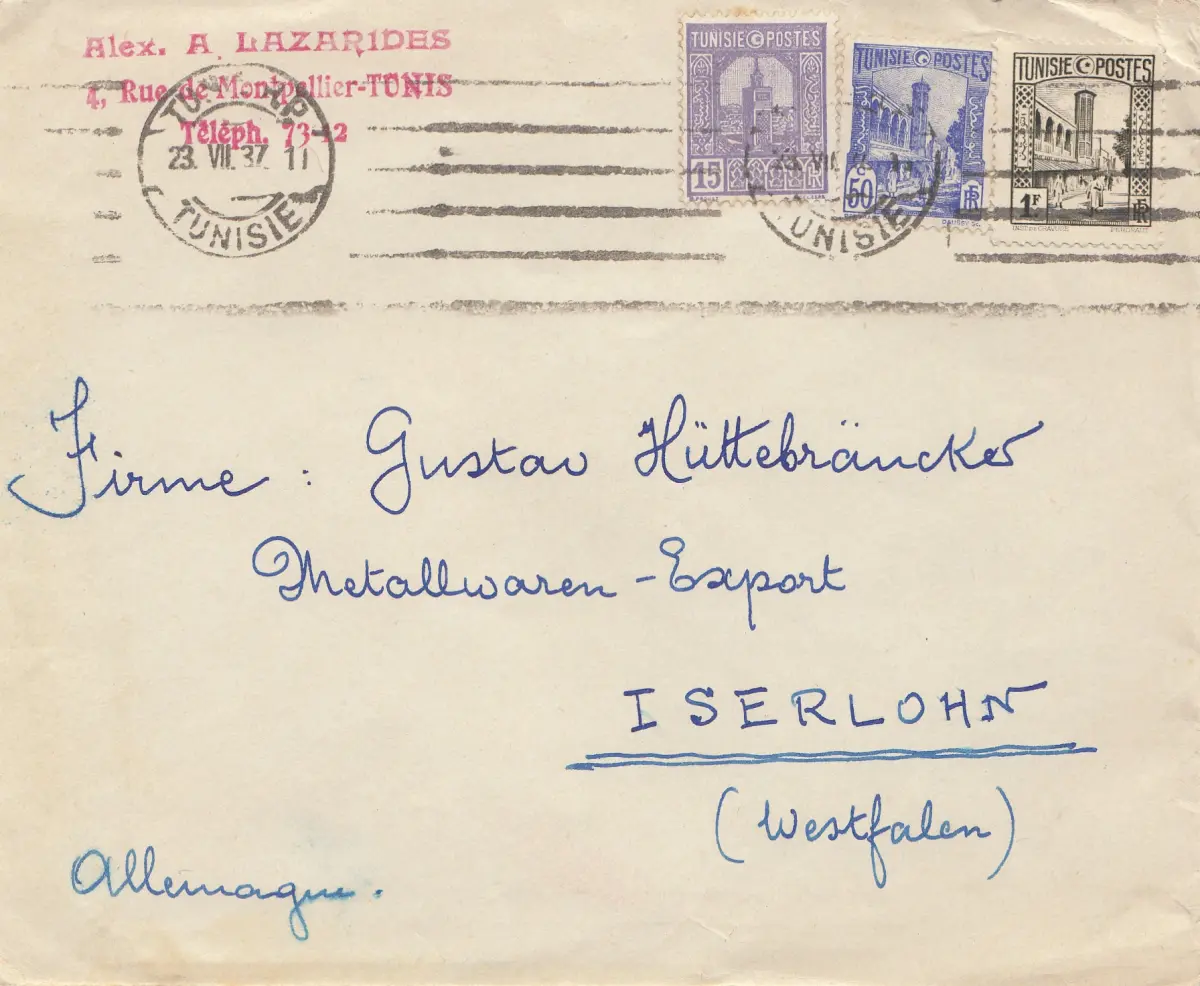 Alex. A. LAZARIDES
4, Rue de Montpellier-TUNIS
Téléph. 73-12
23. VII. 37. 11
TUNISIE
TUNISIE POSTES
15
TUNISIE POSTES
50
RF
TUNISIE POSTES
1F
RF
TUNISIE
Firme : Gustav Hüttebräucker
Metallwaren-Export
ISERLOHN
(Westfalen)
Allemagne.